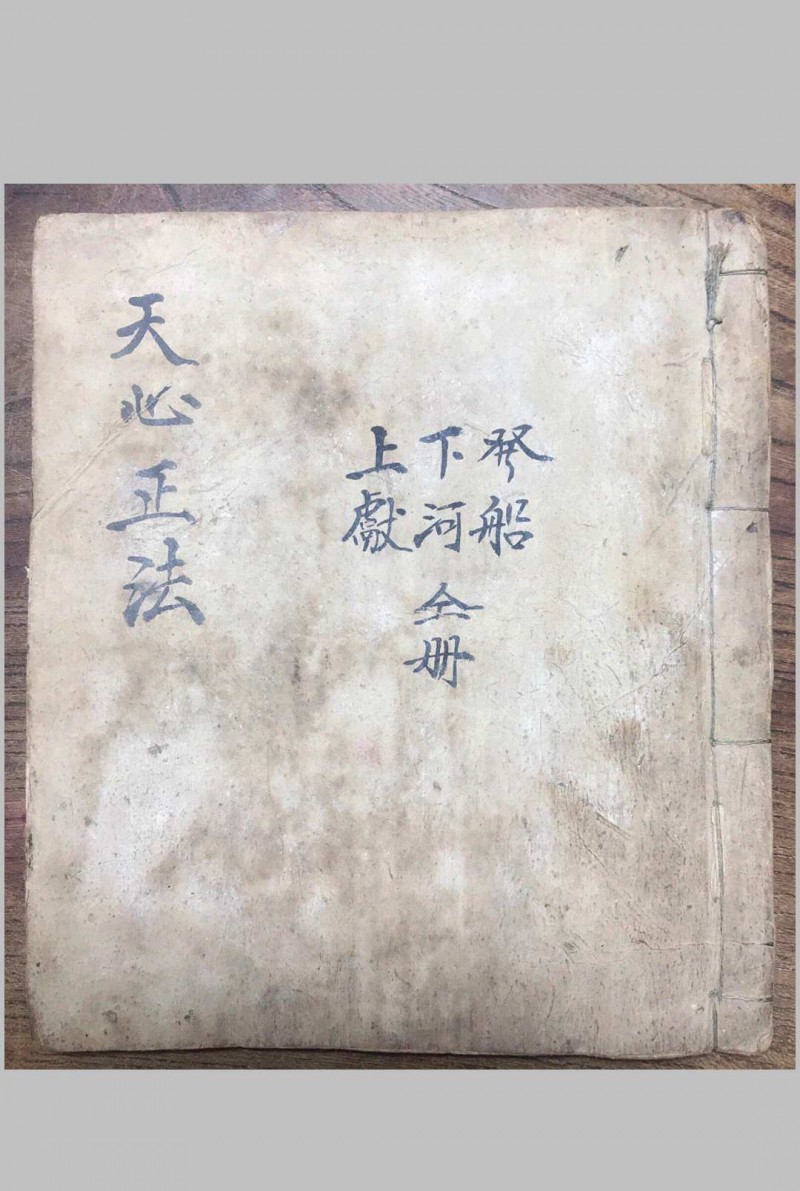 発船
下河
上獻
仝册
天心正法